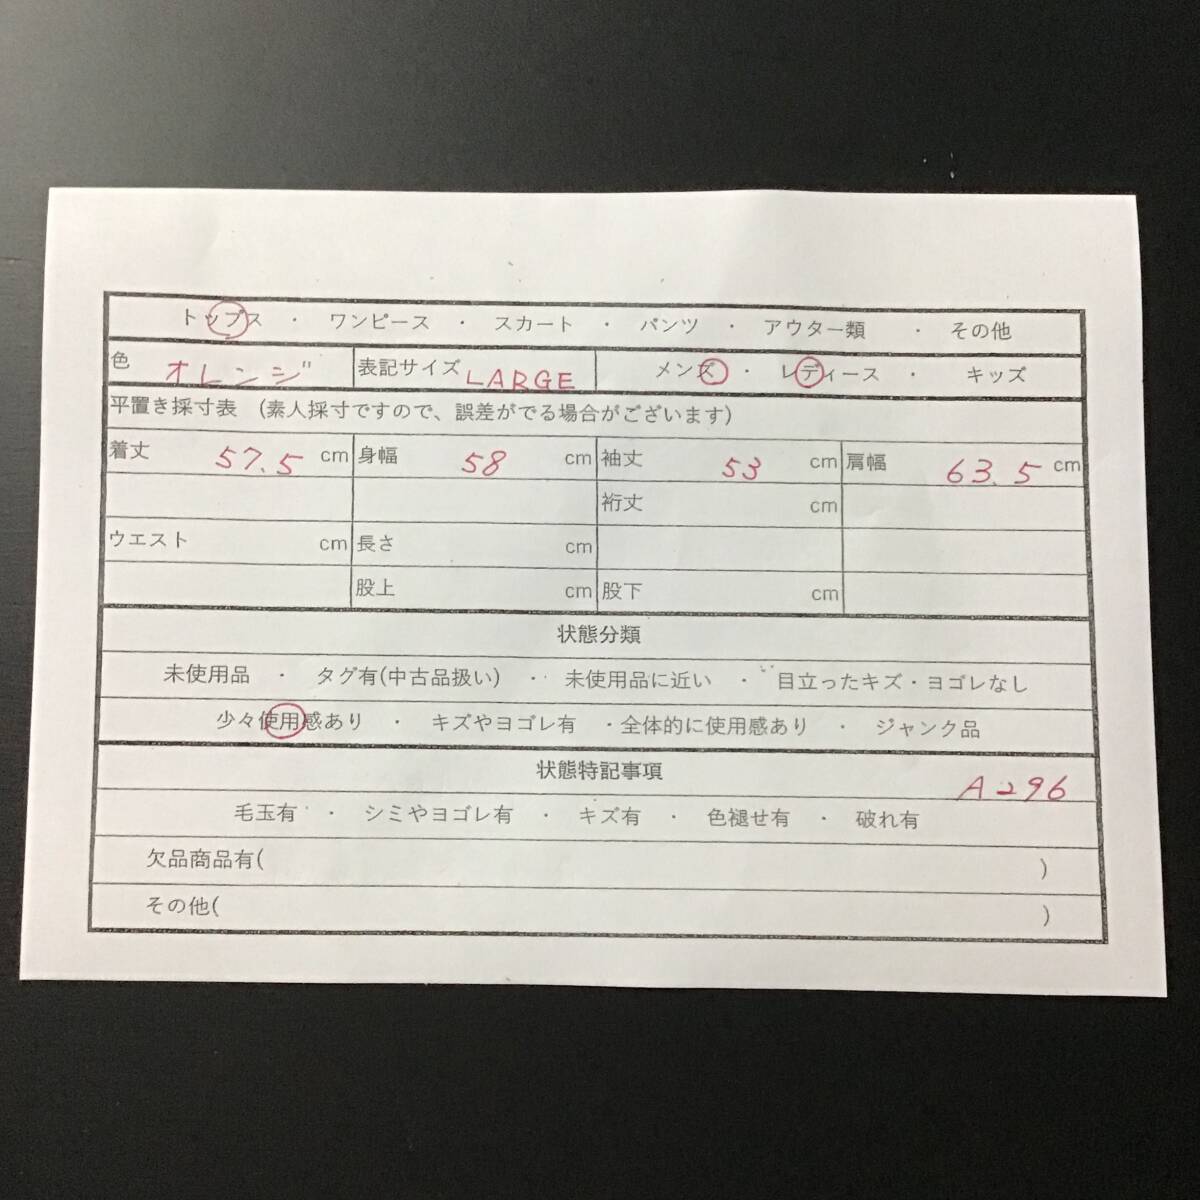 トップス ・ ワンピース ・ スカート ・ パンツ ・ アウター類 ・ その他
色 オレンジ 表記サイズ LARGE メンズ ・ レディース ・ キッズ
平置き採寸表 (素人採寸ですので、誤差がでる場合がございます)
着丈 57.5 cm 身幅 58 cm 袖丈 53 cm 肩幅 63.5 cm
裄丈 cm
ウエスト cm 長さ cm
股上 cm 股下 cm
状態分類
未使用品 ・ タグ有(中古品扱い) ・ 未使用品に近い ・ 目立ったキズ・ヨゴレなし
少々使用感あり ・ キズやヨゴレ有 ・全体的に使用感あり ・ ジャンク品
状態特記事項 A296
毛玉有 ・ シミやヨゴレ有 ・ キズ有 ・ 色褪せ有 ・ 破れ有
欠品商品有( )
その他( )